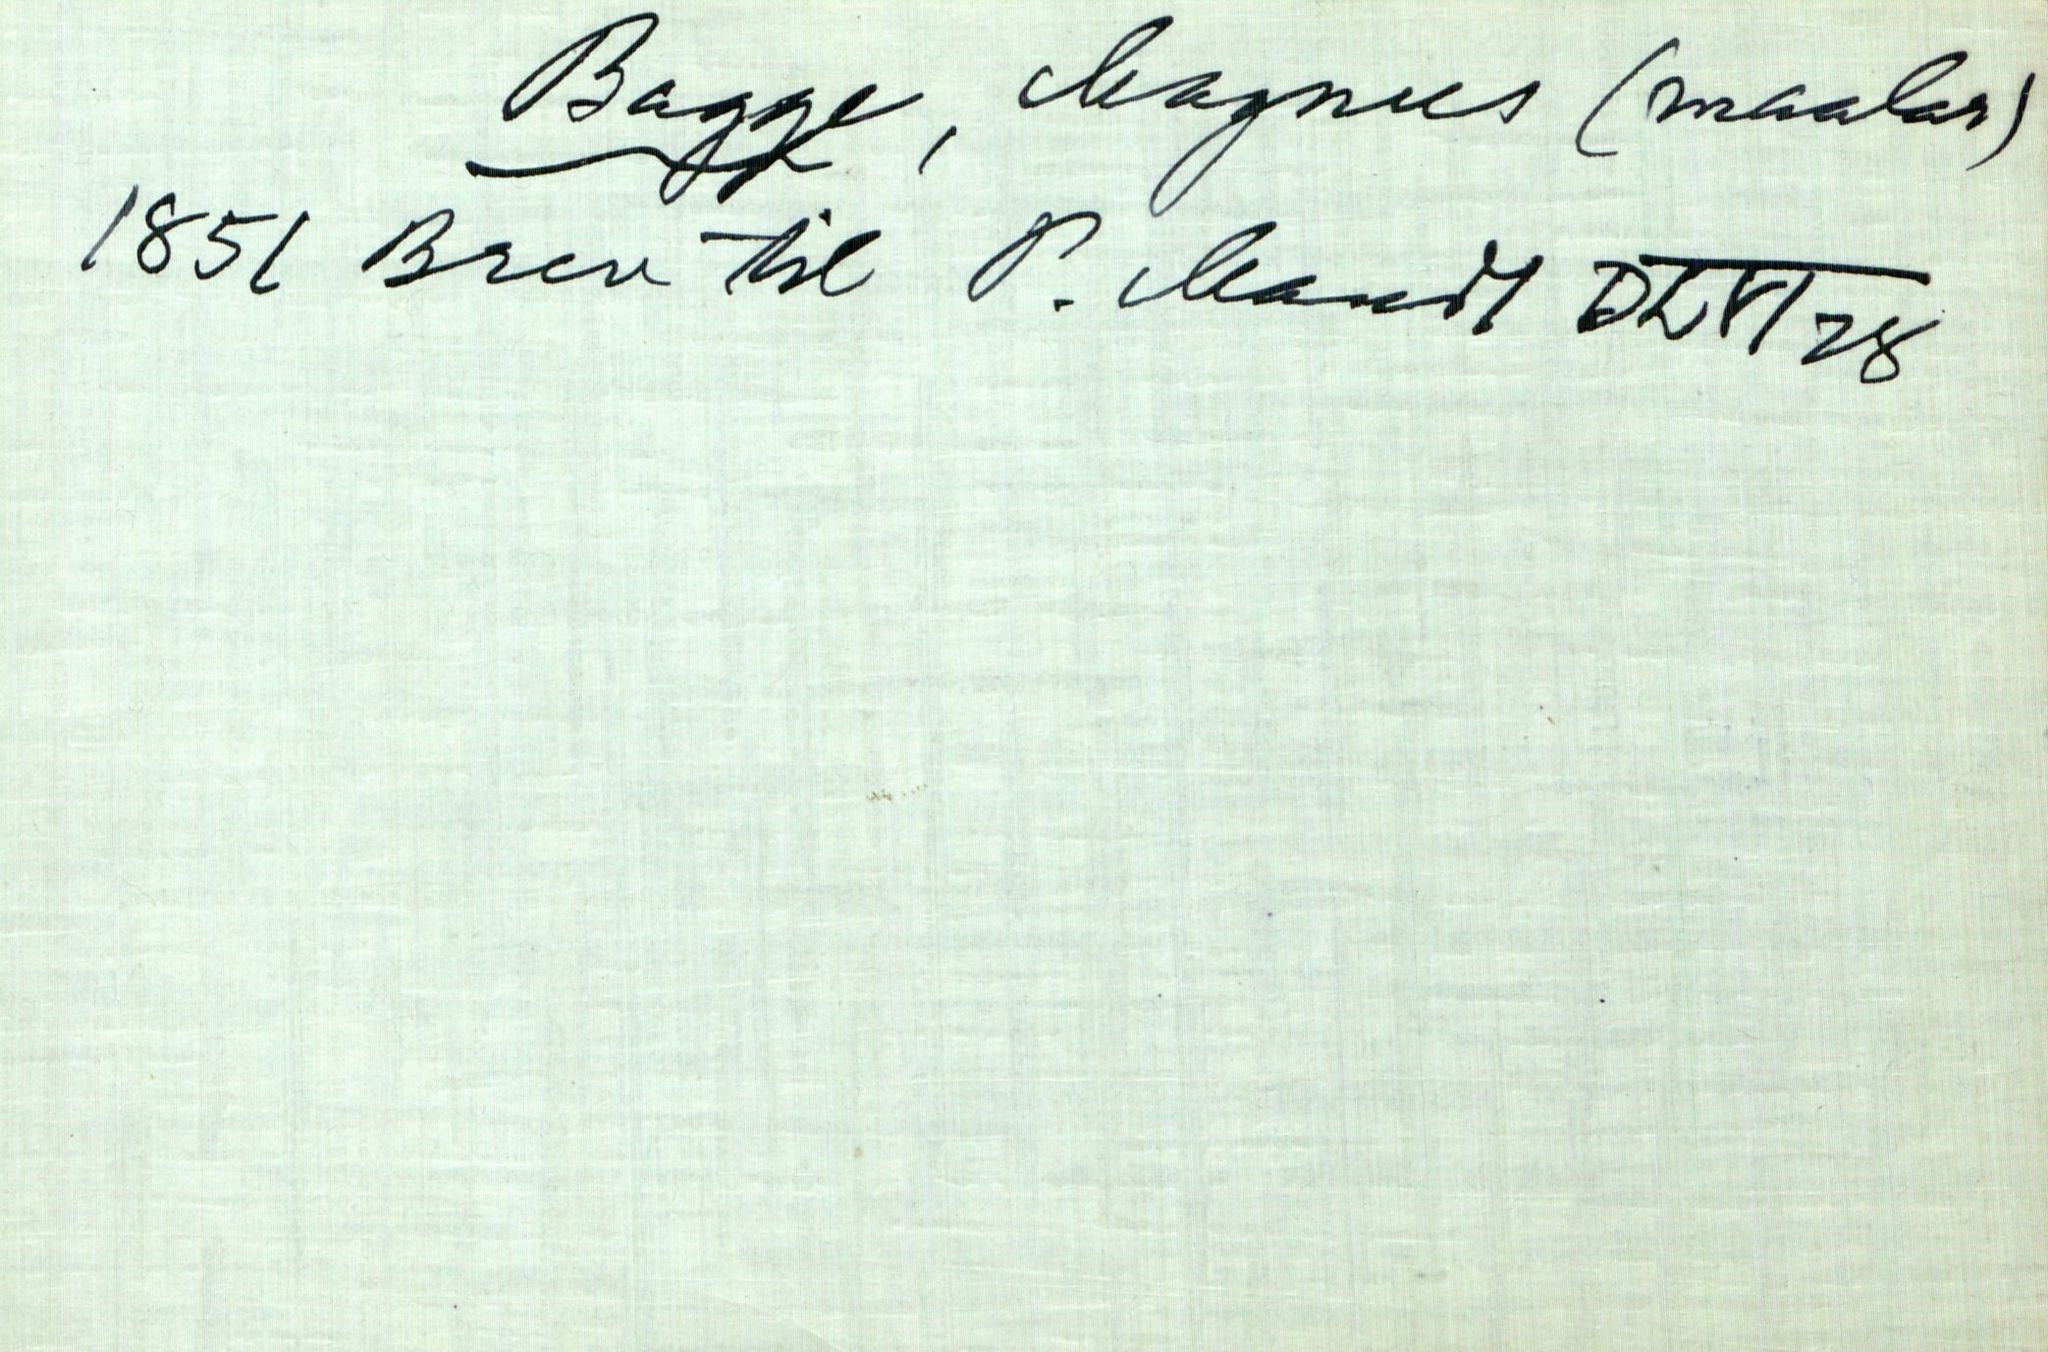 Bagge, Magnus (maalar)
1851 Brev til P. Mandt DLVI 28